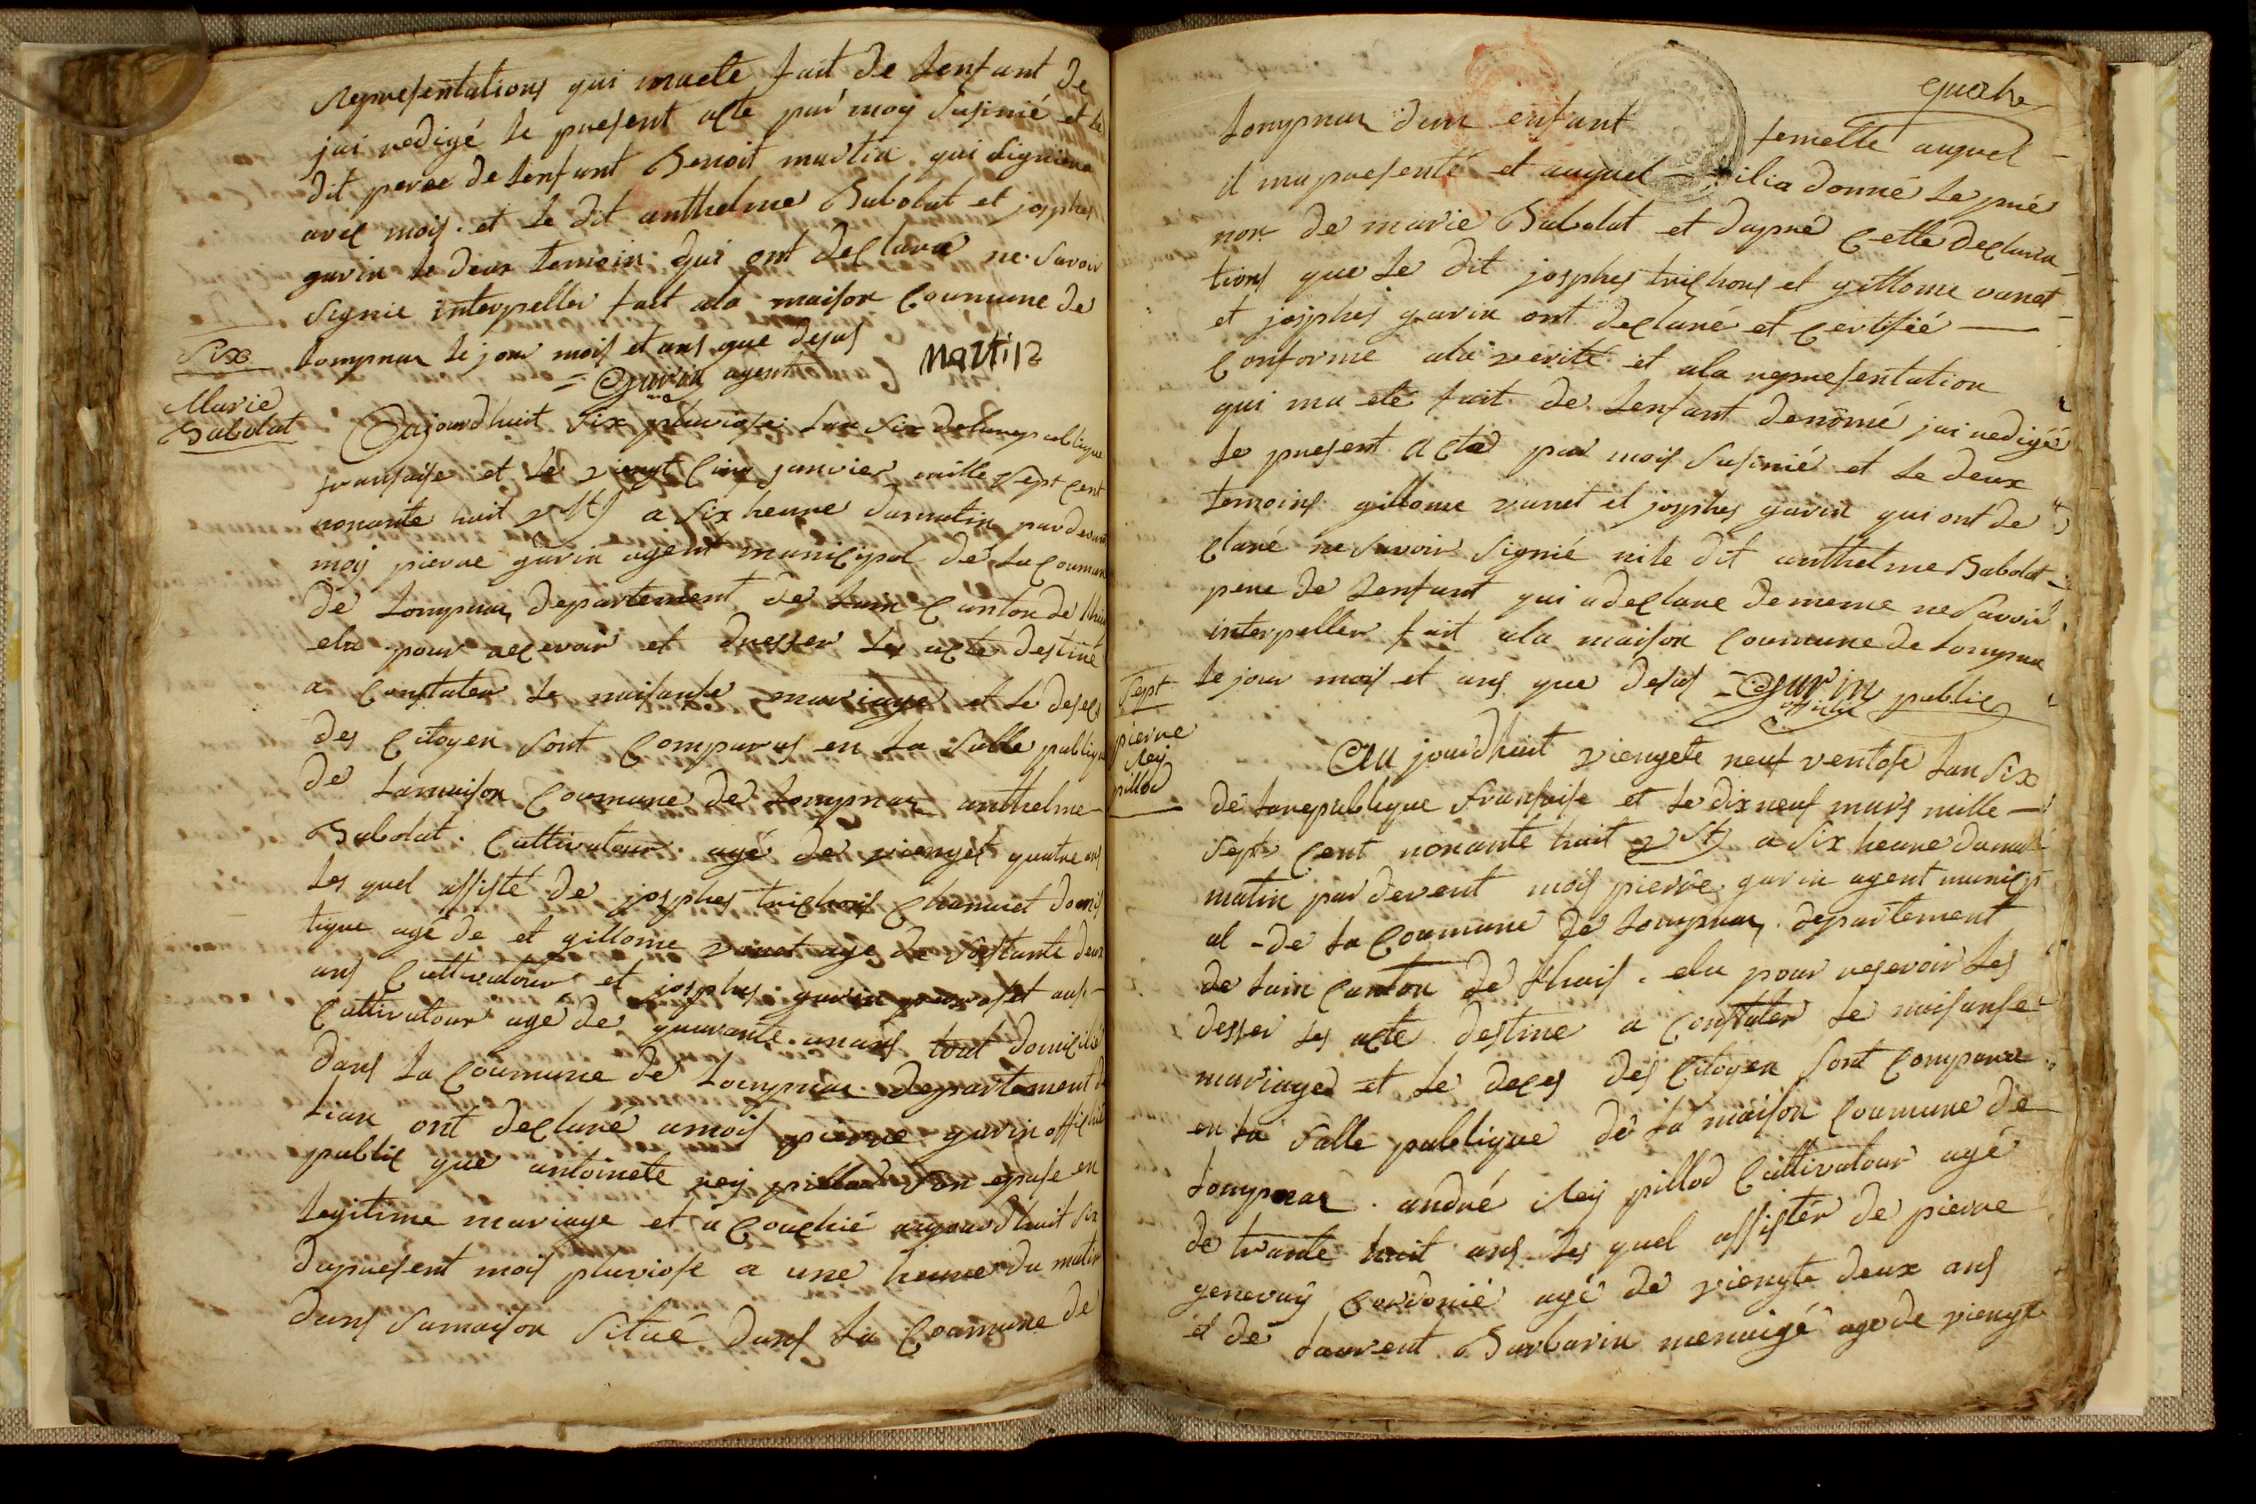 representations qui maete fait de lenfant de
jai redigé le present acte par moy susinié et le
dit perre de lenfant Benoit martin qui signiene
avec mois et le dit anthelme Babolat et josphes
gavin le deux temoin qui ont declaré ne savoir
signie interpeller fait ala maison Coumune de
Lompnas le jour mois et ans que desus
= Gavin agent
Martin
Six
Marie
Babolat
Aujourdhuit six pluviose lan six delarepublique
fransaise et le viengt cinq janvier mille sept cent
nonante huit vst a six heure dumatin par devant
mois pierre gavin agent municipal de la Coumune
de Lompnas departement de Lain Canton de lhuis
elu pour recevoir et dresser les acte destiné
a Constater le naisanse mariage et le deses
des Citoyen sont Comparus en la salle publique
de lamaison Coumune de Lompnas anthelme
Babolat Cultivatour agé de viengt quatre ans
les quel assisté de josphes trichois Chanaret domis
tique agé de et gillome vanet agé de soistante deux
ans Cultivatour et josphes gavin perroset aus-
Cultivatour agé de quarante unans tout domicilié
dans la Coumune de Lompnas departement de
Lian ont declaré amois pierre gavin officié
public que antoinete rey pillod son epuse en
legitime mariage et a Couchié aujourdhuit six
dupresent mois pluviose a une heure du matin
dans samaison situé dans la Coumune de
quatre
Lompnas dun enfant femelle auquel
il ma presenté et auquel ilia donné le pré
non de marie Babolat et dapré Cette declara-
tions que le dit josphes trichons et gillome vanet
et josphes gavin ont declaré et Certifié
Conforme ala verité et ala representation
qui ma eté fait de lenfant denomé jai redigé
le present acte par mois susinié et le deux
temoins gillome vanet et josphes gavin qui ont de
claré ne savoir signié nile dit anthelme Babolat
pere de lenfant qui a declare dememe ne savoir
interpeller fait ala maison Coumune de Lompnas
le jour mois et ans que desus = Gavin
officié public
Sept
pierre
Rey
pillod
Au jourdhuit viengete neuf ventose lan six
de larepublique fransaise et le dix neuf mars mille
sept cent nonante huit vst a six heure dumat
matin par devent mois pierre gavin agent municip
al - de la Coumune de Lompnas departement
de Lain Canton de lhuis elu pour resevoir les
desser les acte destine a Constater le naisanse
mariage et le deces des Citoyen sont Comparu
en la salle publique de la maison Coumune de
Lompnas andré Rey pillod Cultivatour agé
de trante huit ans les quel assister de pierre
genevay Cordonié agé de viengte deux ans
et de laurent Barbarin menuigé age de viengt